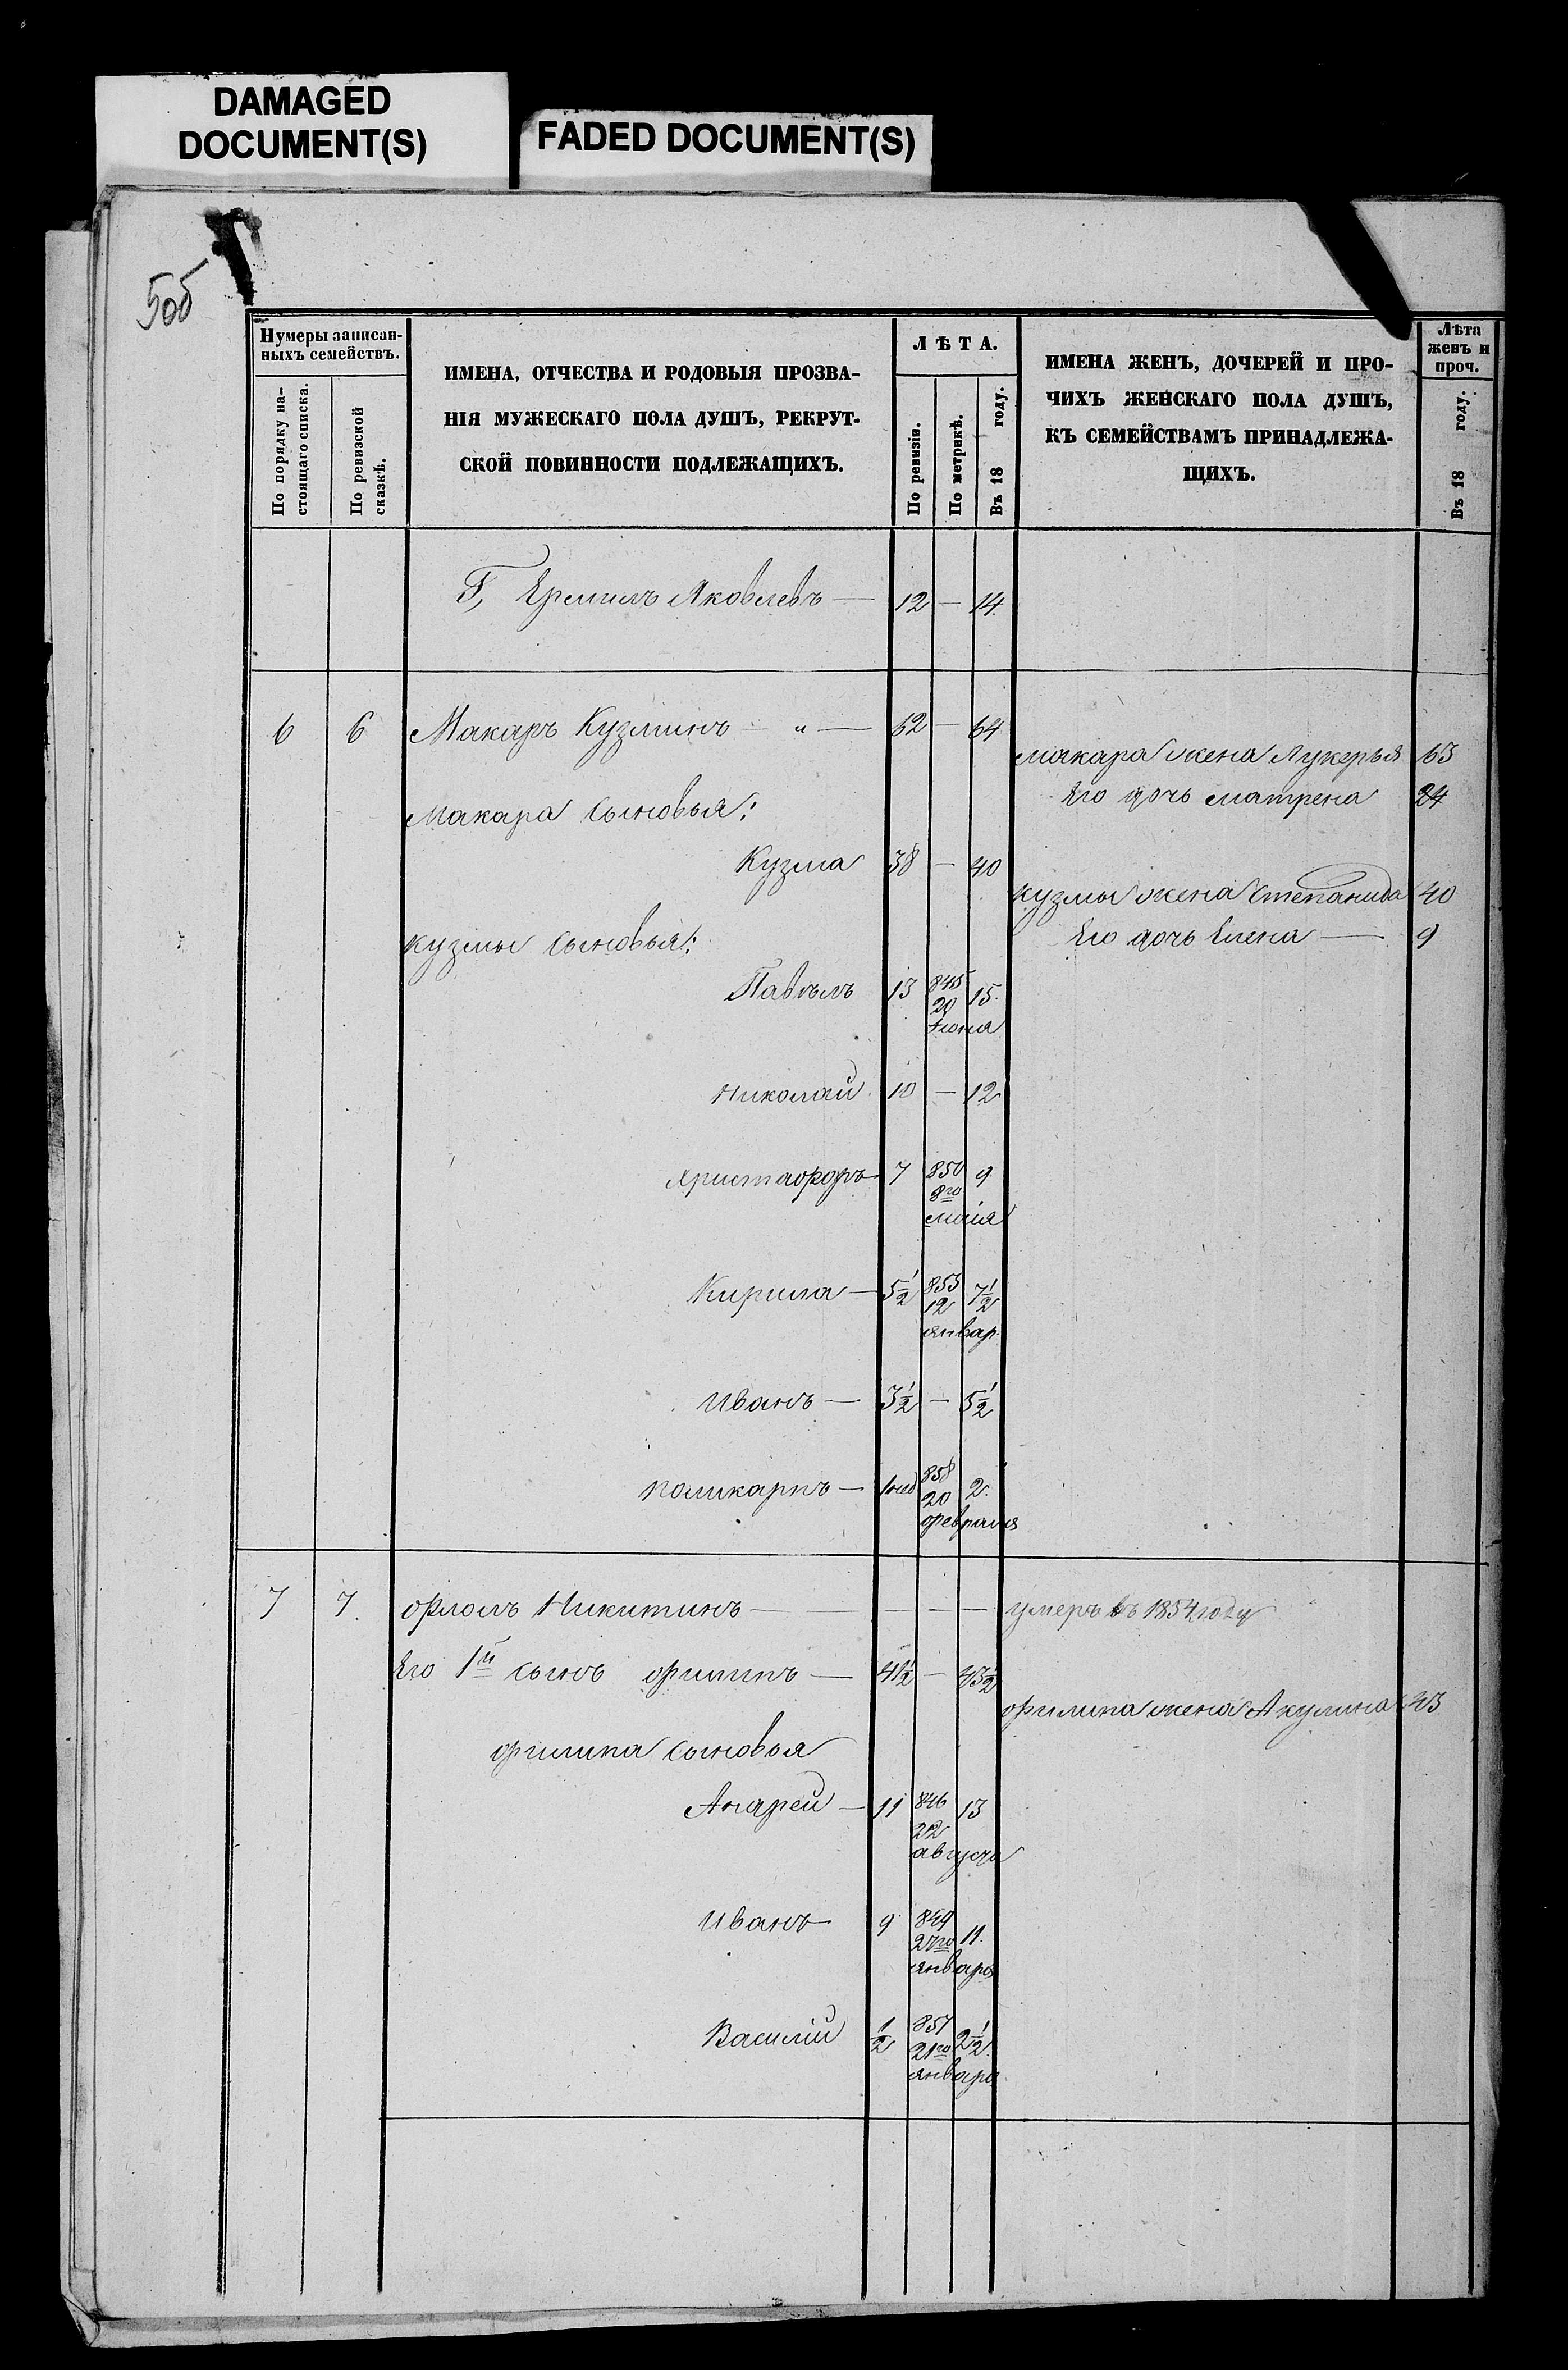 DAMAGED
DOCUMENT(S)
FADED DOCUMENT(S)
5об
Нумеры записан-
ныхъ семействъ.
По порядку на-
стоящаго списка.
По ревизской
сказкѣ.
ИМЕНА, ОТЧЕСТВА И РОДОВЫЯ ПРОЗВА-
НІЯ МУЖЕСКАГО ПОЛА ДУШЪ, РЕКРУТ-
СКОЙ ПОВИННОСТИ ПОДЛЕЖАЩИХЪ.
ЛѢТА.
По ревизіи.
По метрикѣ.
Въ 18 году.
ИМЕНА ЖЕНЪ, ДОЧЕРЕЙ И ПРО-
ЧИХЪ ЖЕНСКАГО ПОЛА ДУШЪ,
КЪ СЕМЕЙСТВАМЪ ПРИНАДЛЕЖА-
ЩИХЪ.
Лѣта
женъ и
проч.
Въ 18 году.
Ермилъ Яковлевъ — 12 — 14
6 6 Макаръ Кузминъ — " — 62 — 64
макара жена Лукерья 63
Его дочь матрена 24
Макара сыновья:
Кузма 38 — 40
кузмы жена Степанида 40
Его дочь Елена — 9
кузмы сыновья:
Павелъ 13 845 15.
20
Іюня
Николай 10 — 12
Христафоръ 7 850 9
8го
маія
Кирила — 5½ 853 7½
12
январ.
Иванъ — 3½ — 5½
поликарпъ — 1нед 858 2.
20
февраля
7 7. Фролъ Никитинъ — — — — — умеръ въ 1854 году
Его 1й сынъ филипъ — 41½ — 43½
филипа жена Акулина 43
филипа сыновья
Андрей — 11 846 13
22
августа
Иванъ 9 849 11.
27го
января
Василій ½ 857 2½.
21го
января